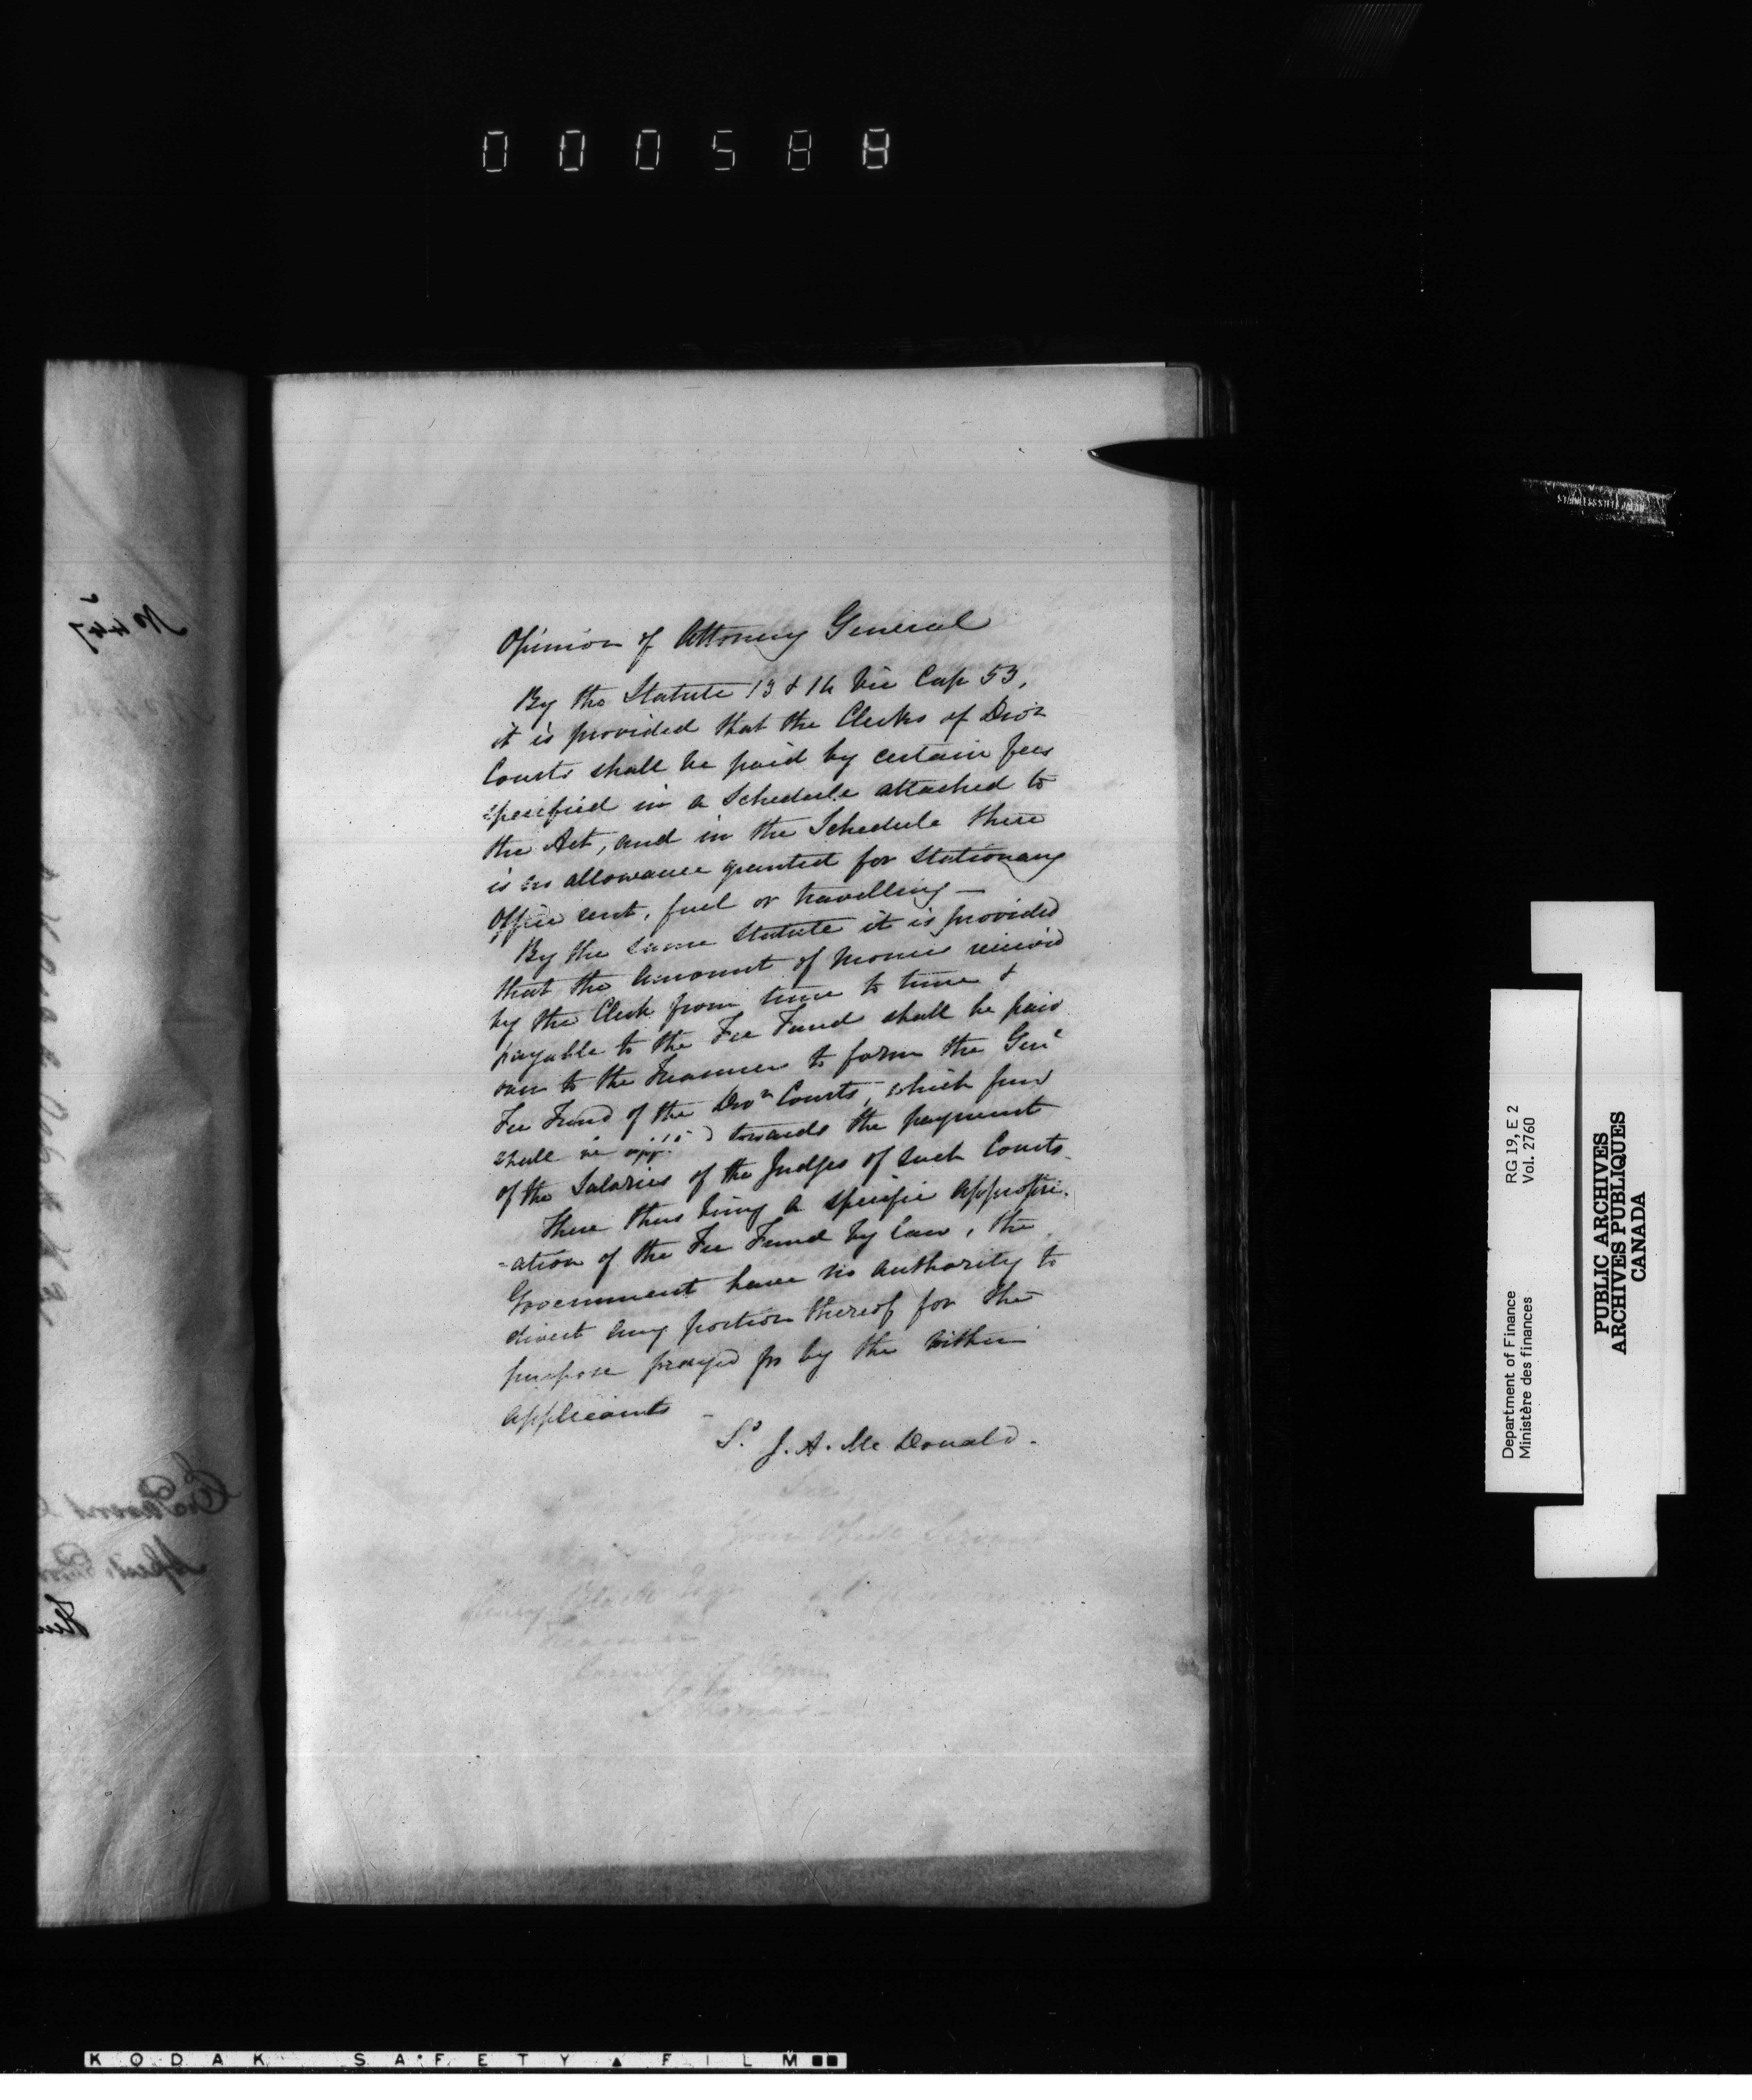 000588
Opinion of Attorney General
By the Statute 13 & 14 Vic Cap 53,
it is provided that the Clerks of Divn
Courts shall be paid by certain fees
specified in a Schedule attached to
the Act, and in the Schedule there
is no allowance granted for Stationary
Office rent, fuel or travelling —
By the same Statute it is provided
that the amount of monies received
by the Clerk from time to time &
payable to the Fee Fund shall be paid
over to the Treasurer to form the Genl
Fee Fund of the Divn Courts, which fund
shall be applied towards the payment
of the Salaries of the Judges of such Courts.
There thus being a specific appropri-
-ation of the Fee Fund by law, the
Government have no authority to
divert any portion thereof for the
purpose prayed for by the within
applicants —
Sd J. A. McDonald.
Your Obedt Servant
Henry Black Esqr
Treasurer
County of Elgin
St Thomas
No 447
RG 19, E 2
Vol. 2760
Department of Finance
Ministère des finances
PUBLIC ARCHIVES
ARCHIVES PUBLIQUES
CANADA
STAINLESS STEEL JAPAN
KODAK SAFETY ▲ FILM